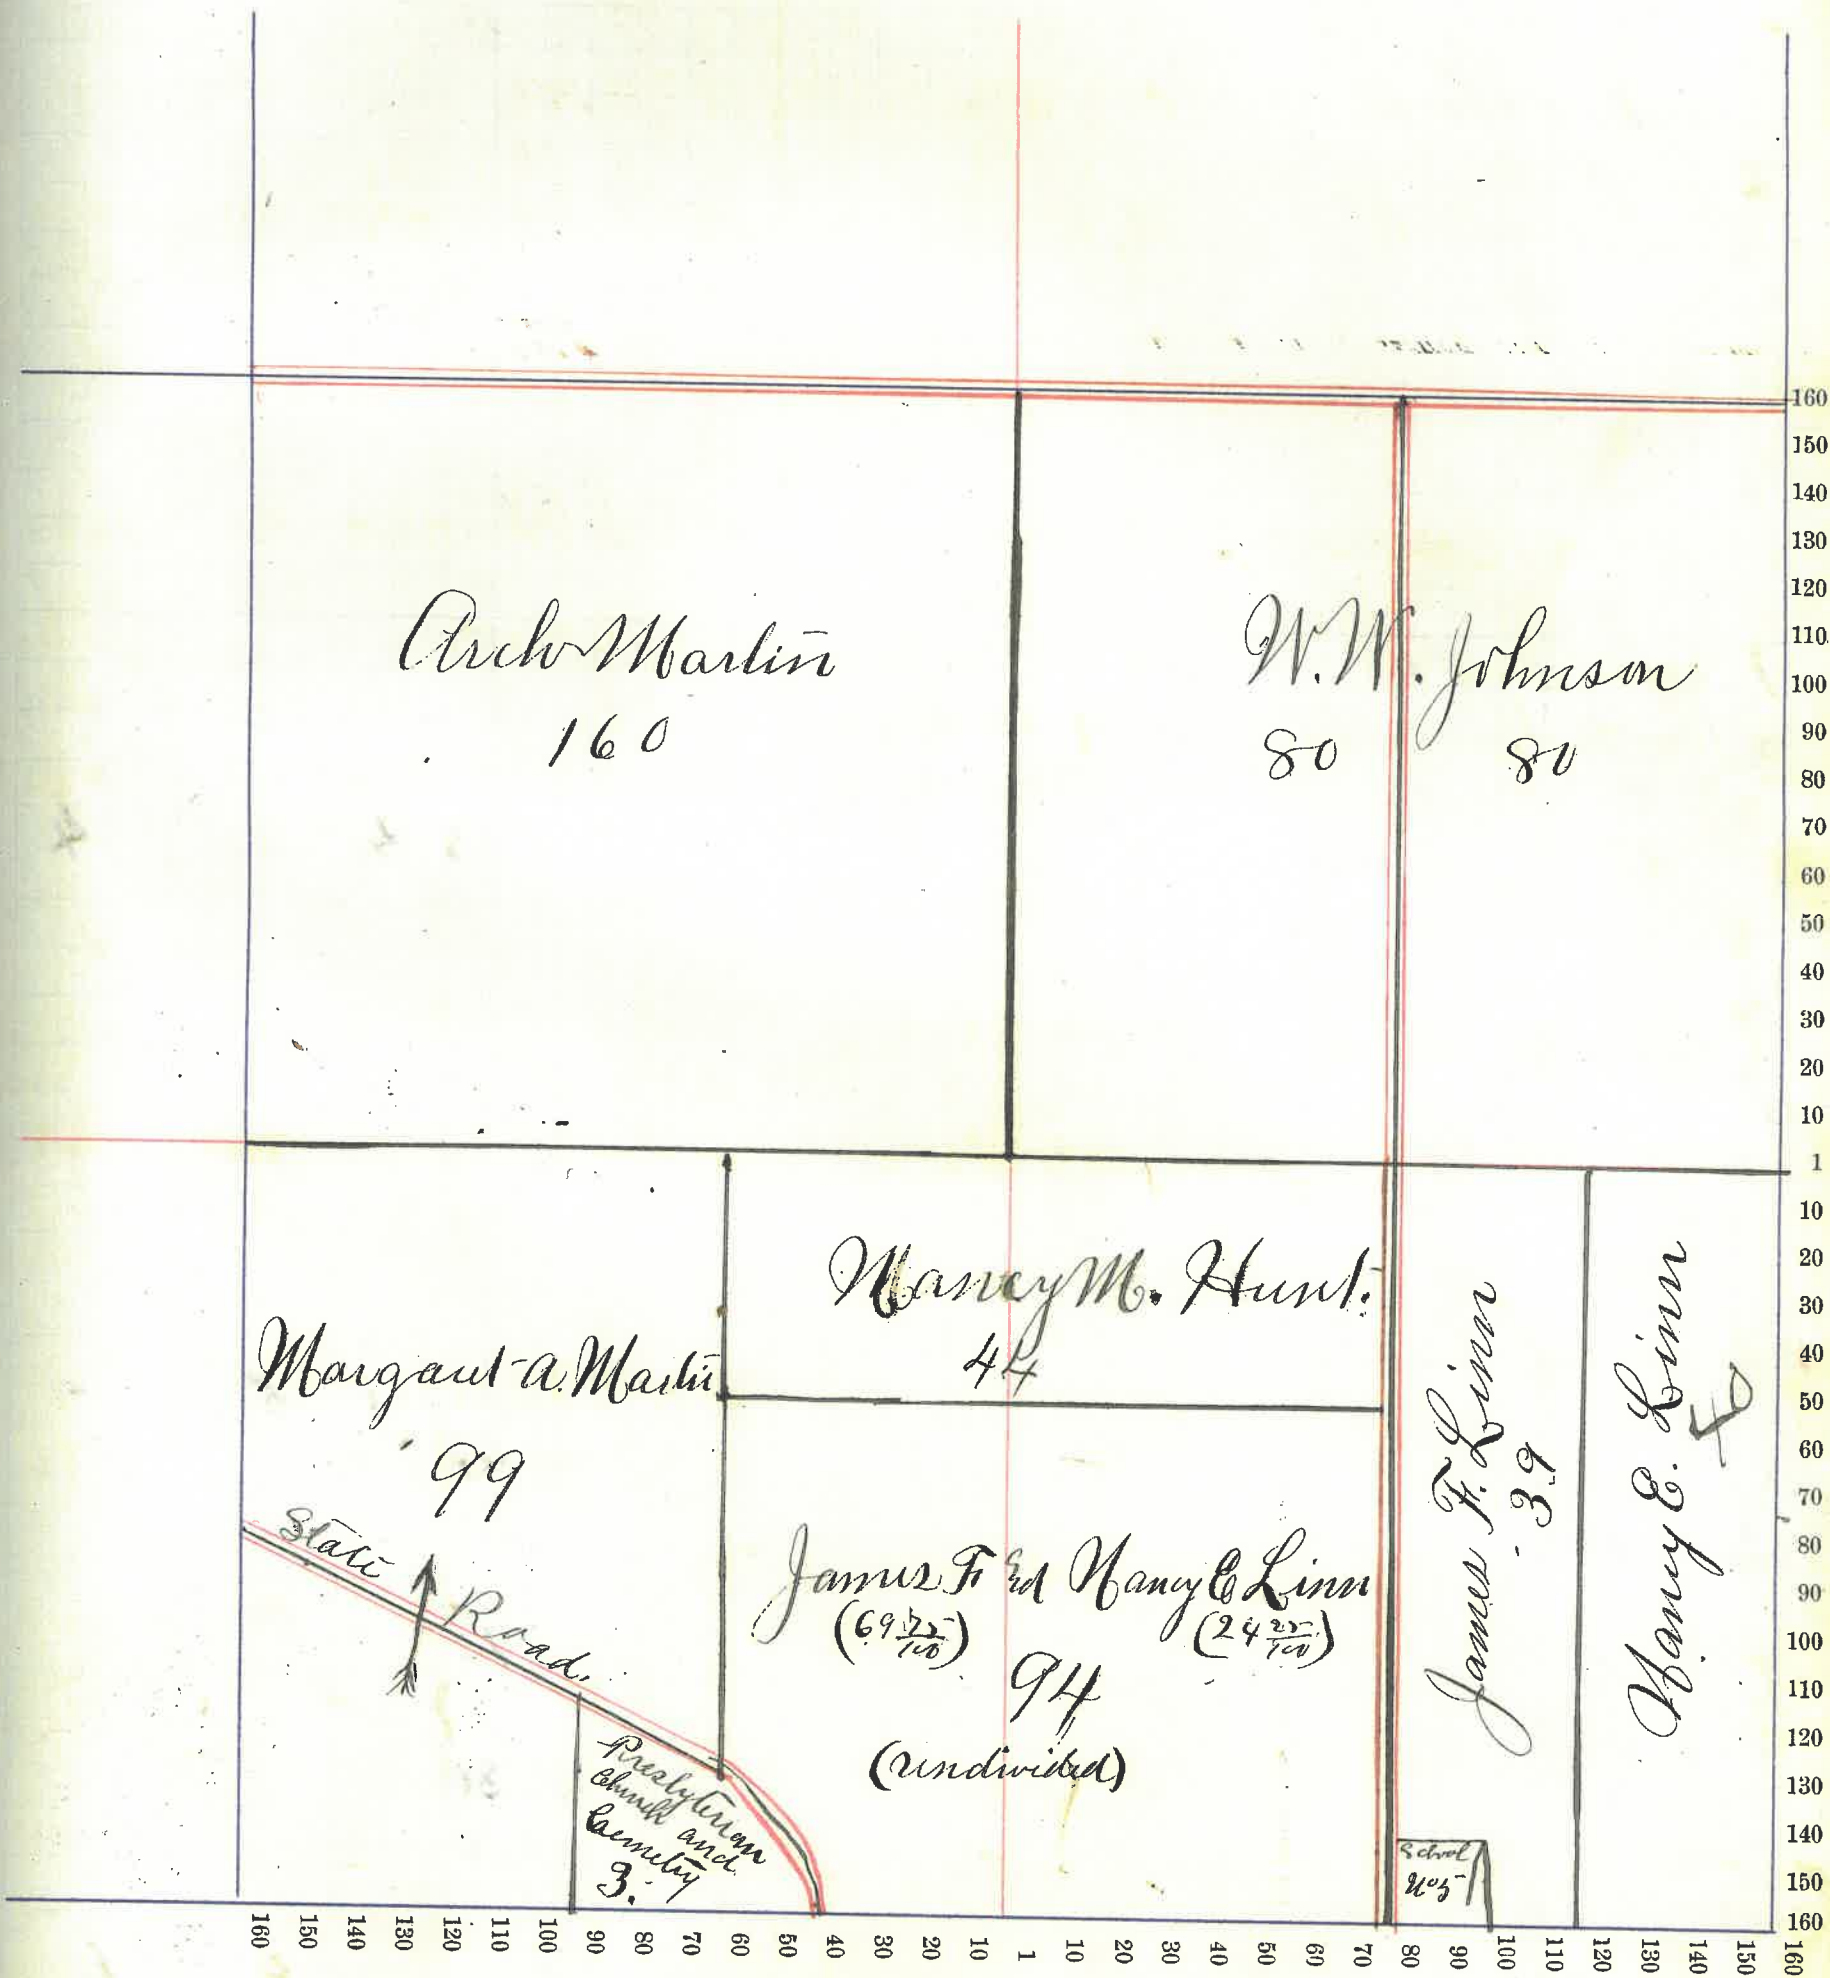 Arch Martin
160
W. W. Johnson
80 80
Nancy M. Hunt.
44
Margaret A. Martin
99
State Road.
James F. Linn
39
Nancy E. Linn
40
James F and Nancy E Linn
(69 75/100) (24 25/100)
94
(undivided)
Presbyterian
Church and
Cemetery
3.
School
No 5
1
160
150
140
130
120
110
100
90
80
70
60
50
40
30
20
10
1
10
20
30
40
50
60
70
80
90
100
110
120
130
140
150
160
160 150 140 130 120 110 100 90 80 70 60 50 40 30 20 10 1 10 20 30 40 50 60 70 80 90 100 110 120 130 140 150 160